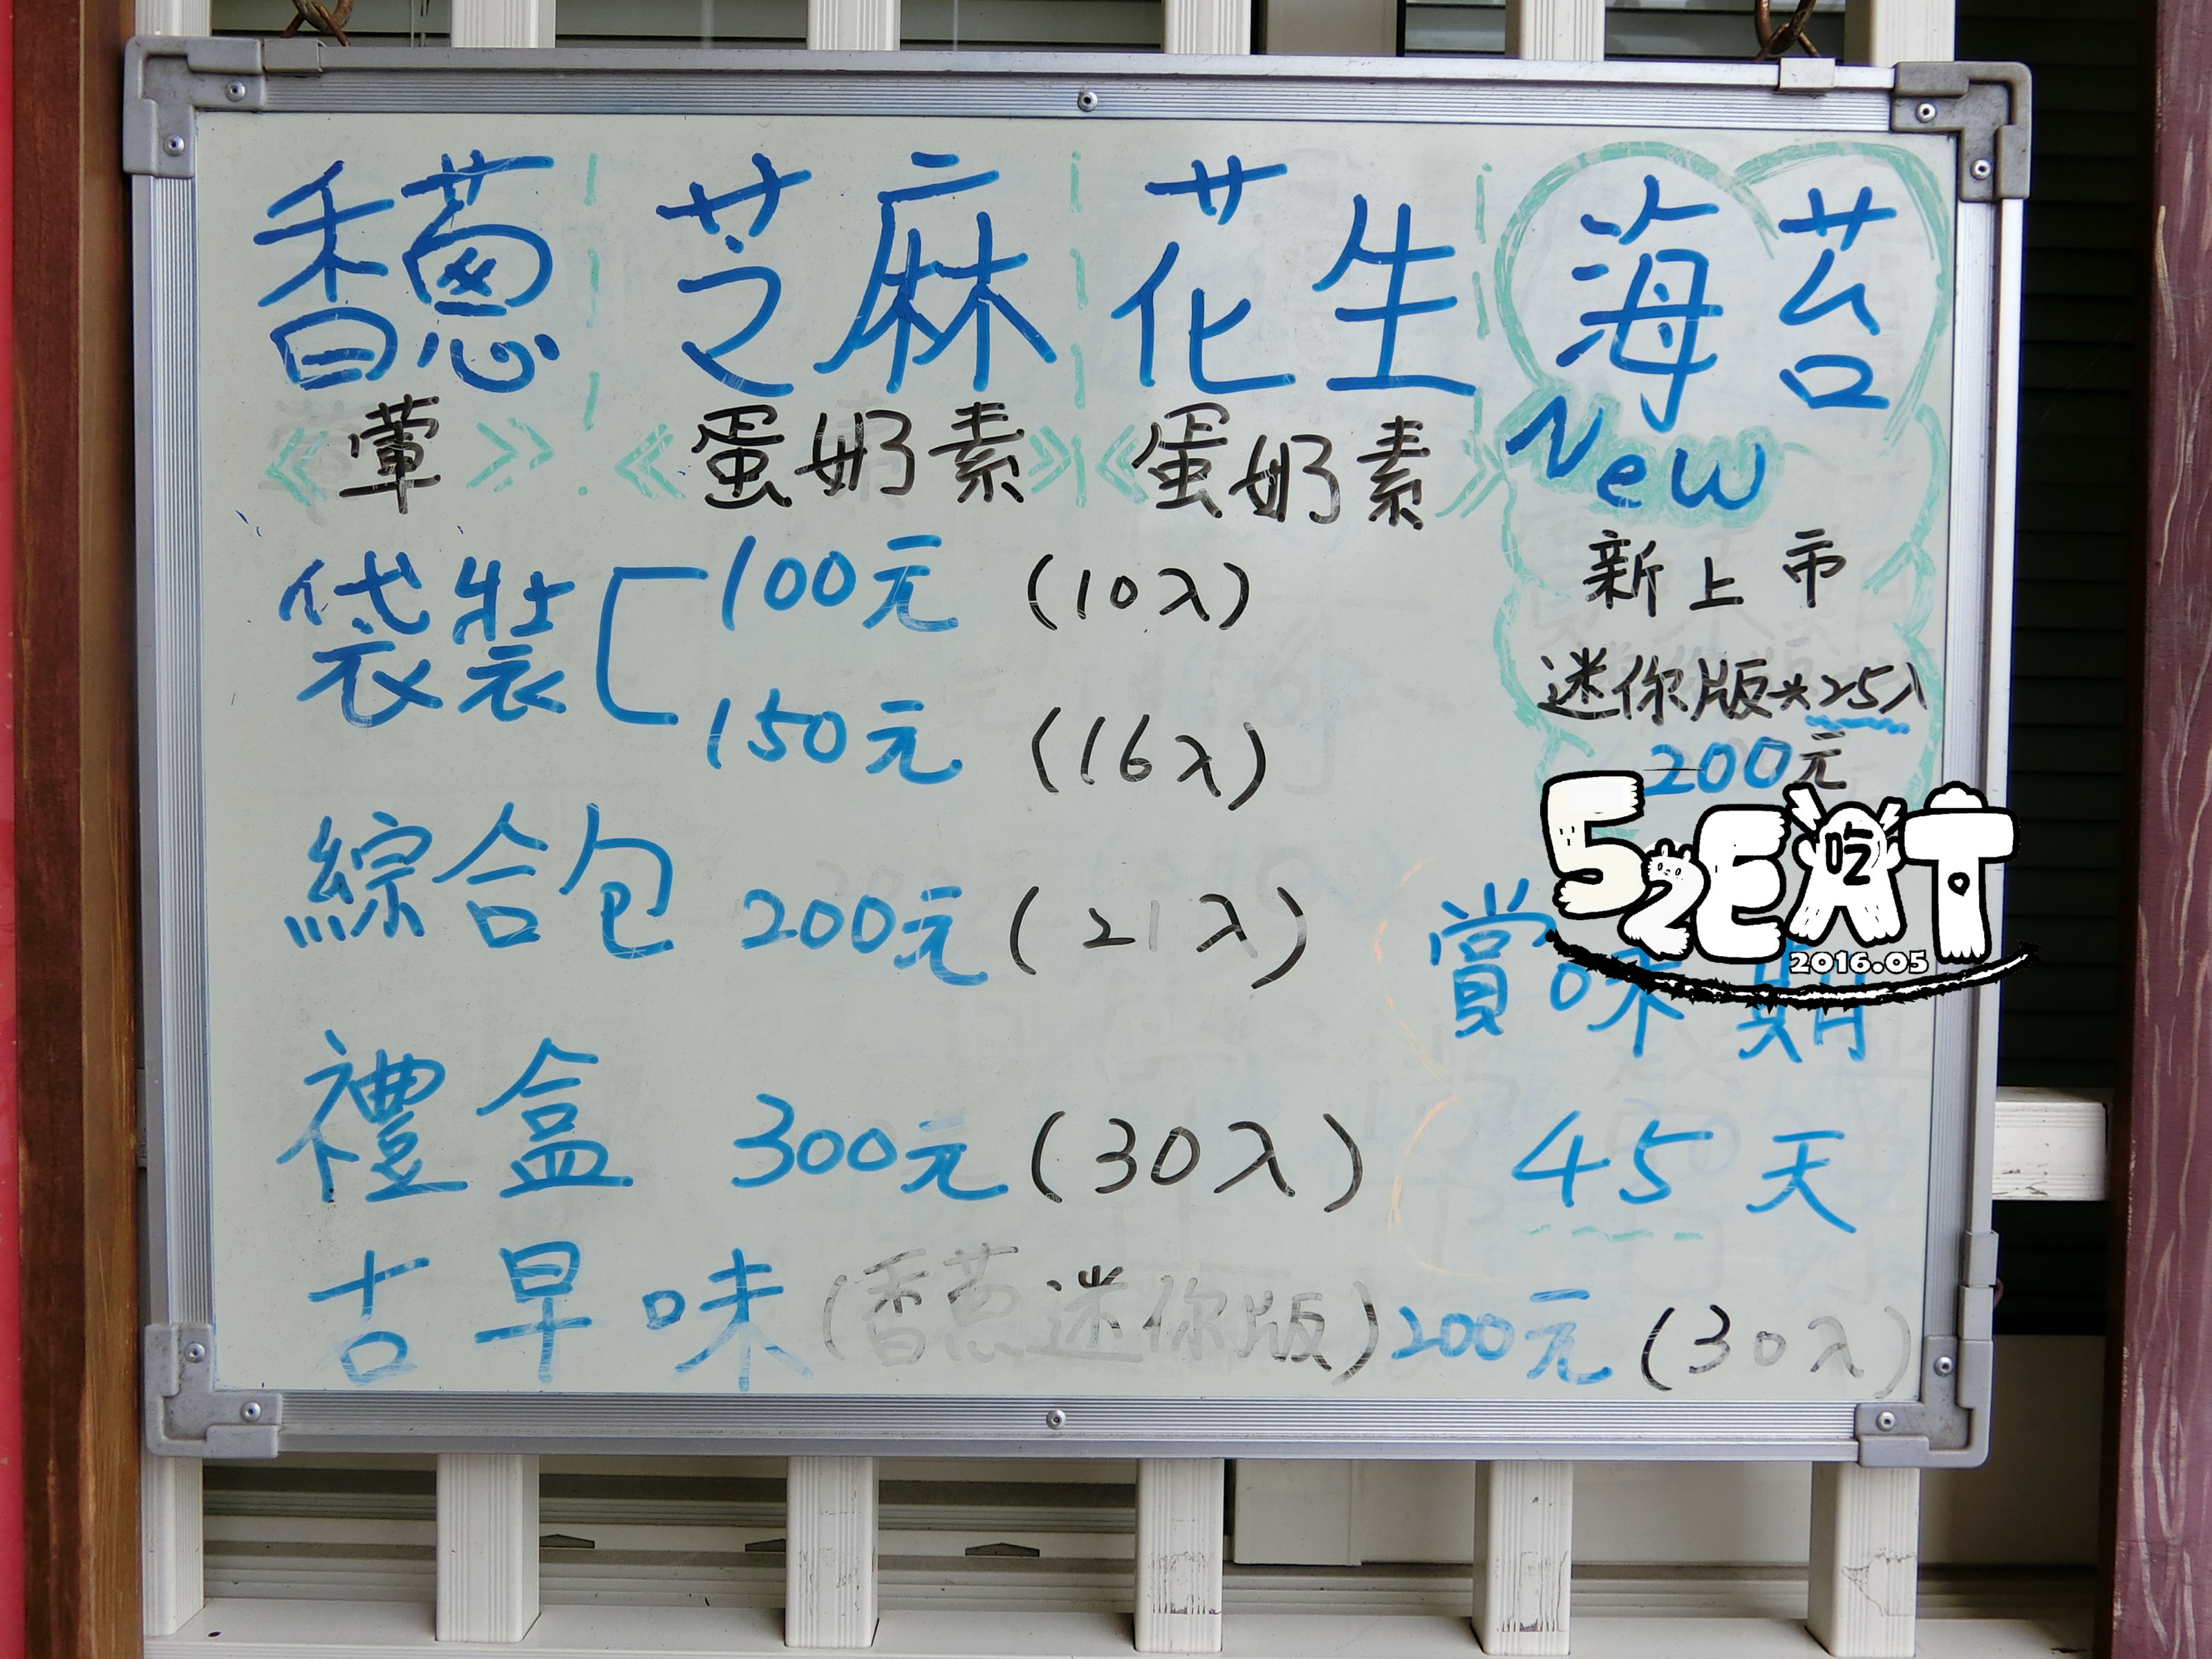 香蔥 芝麻 花生 海苔
《葷》 《蛋奶素》 《蛋奶素》 New
新上市
迷你版*25入
200元
袋裝 100元 (10入)
150元 (16入)
綜合包 200元 (21入)
禮盒 300元 (30入)
賞味期
45天
古早味 (香蔥迷你版) 200元 (30入)
52EAT
吃
2016.05